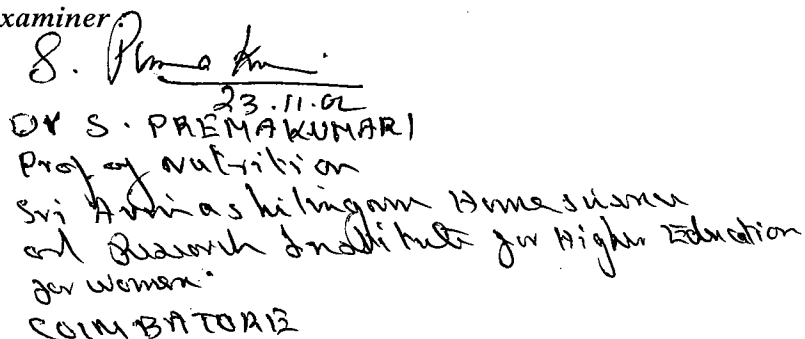 xaminer :
S. Prema Kumari
23.11.02
Dr S. PREMAKUMARI
Prof of Nutrition
Sri Avinashilingam Homescience
and Research Institute for Higher Education
for women.
COIMBATORE